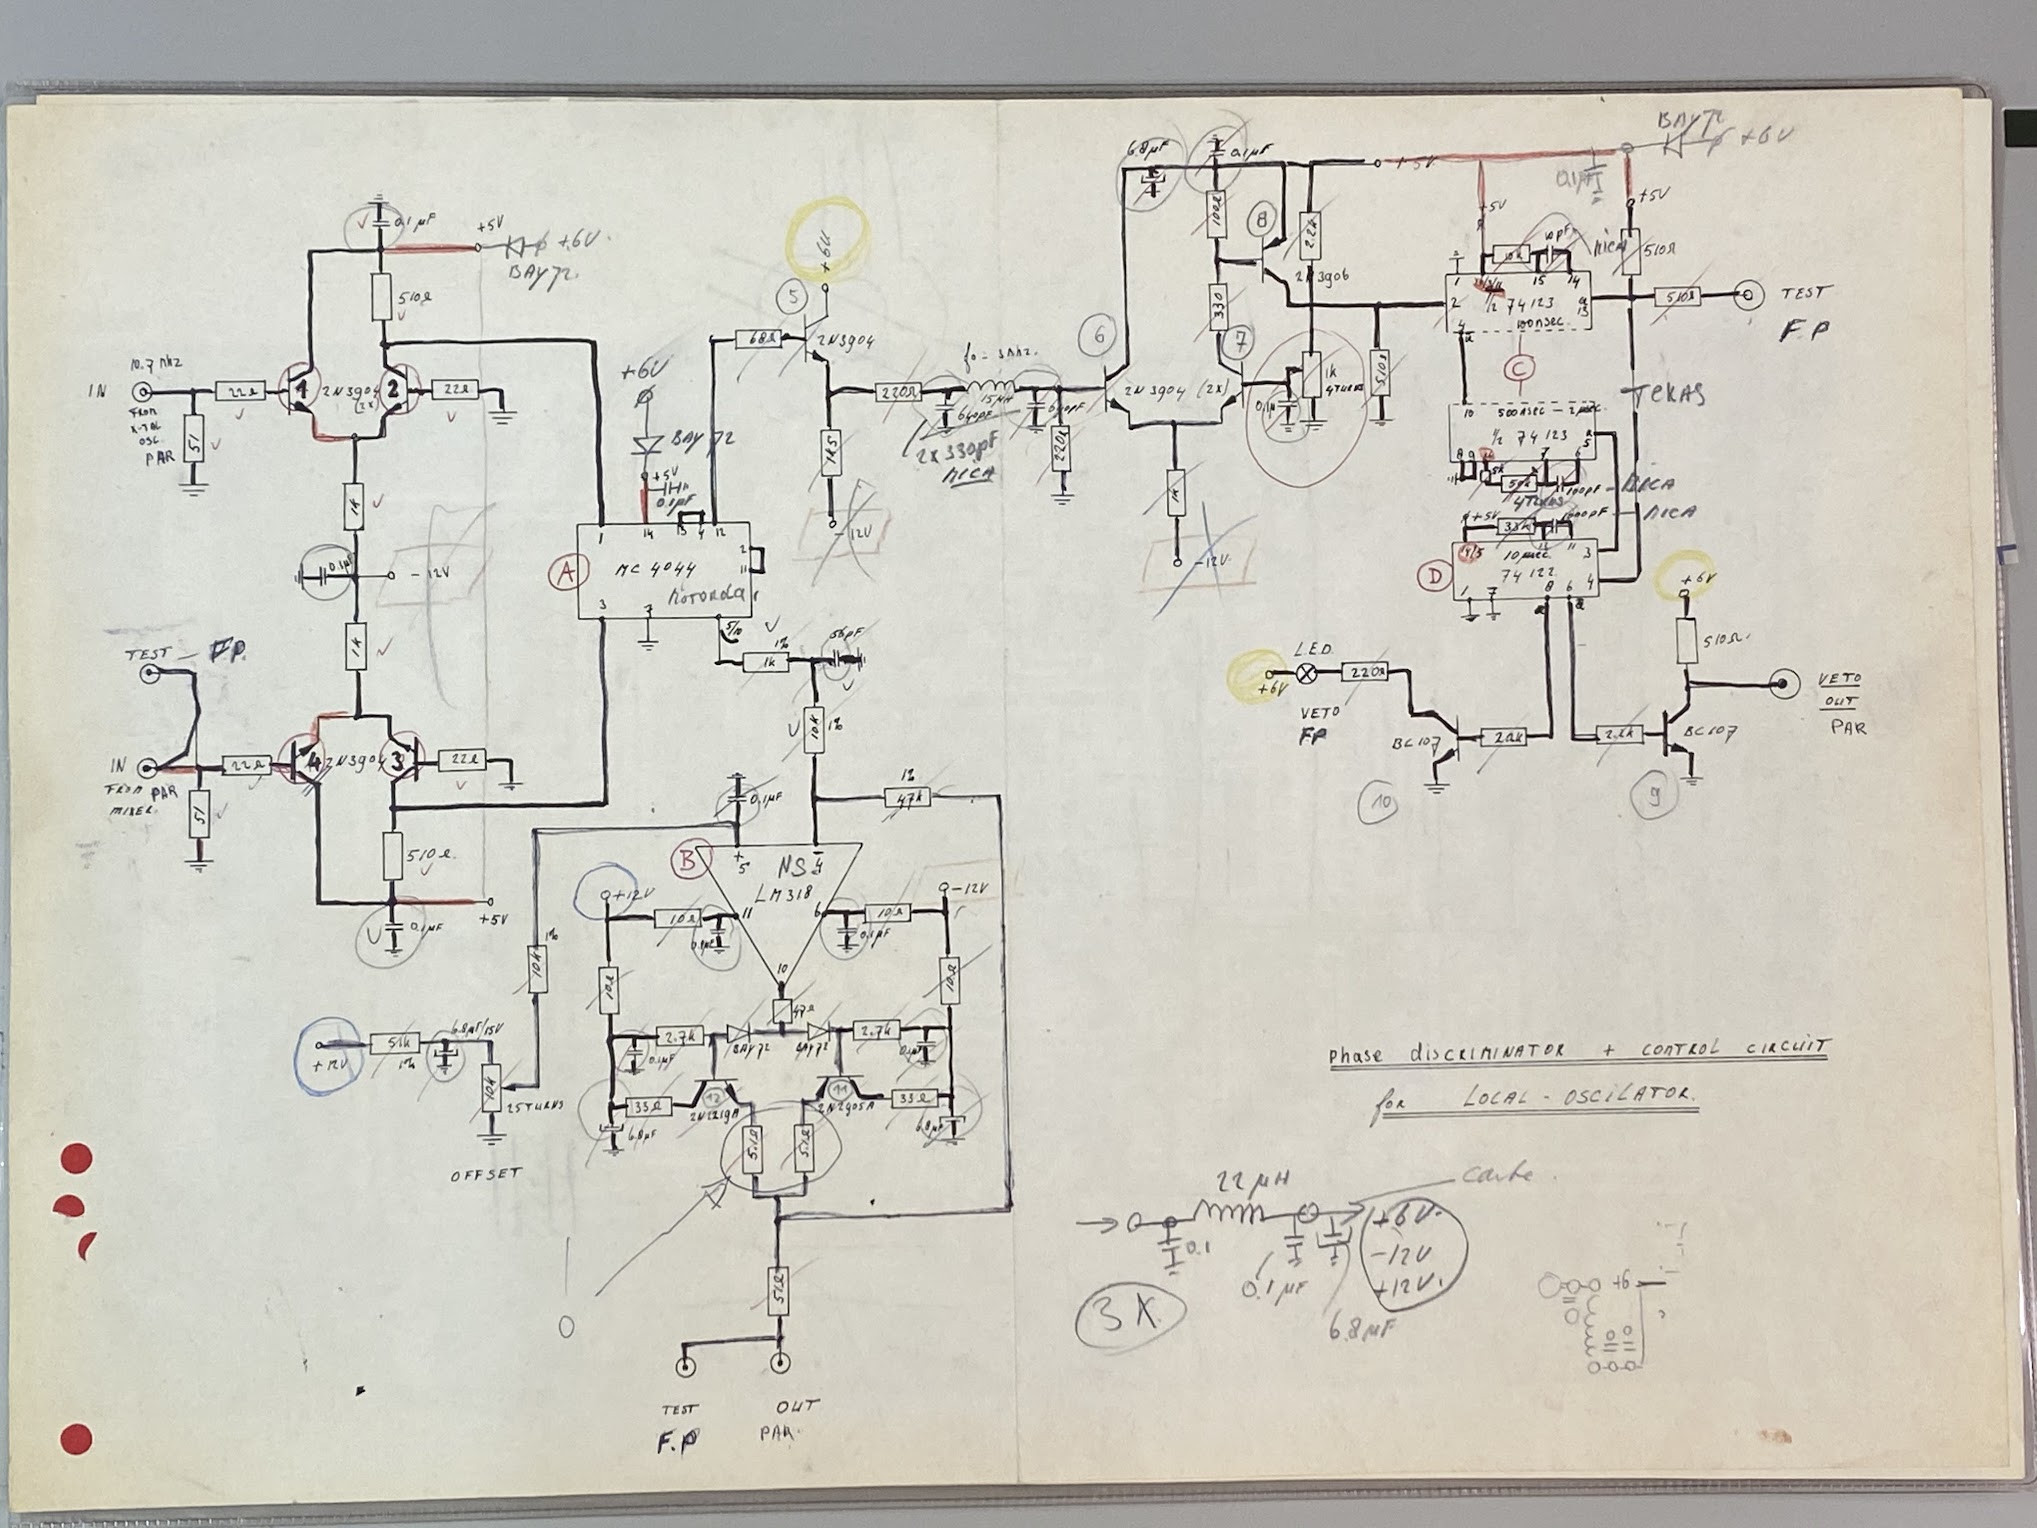 0.1µF
+5V
+6V.
BAY72.
510Ω
10.7 MHZ
IN
FROM
X-TAL
OSC.
PAR
22Ω
1
2N3904
(2x)
2
22Ω
51
1k
0.1µF
-12V
1k
TEST - F.P.
IN
FROM PAR
MIXER.
22Ω
4
2N3904
3
22Ω
51
510Ω.
+5V
0.1µF
+6V
BAY72
+5V
0.1µF
1
14
13
4
12
2
11
A
MC 4044
MOTOROLA
3
7
5/10
+6V
5
68Ω
2N3904
1k5
-12V
220Ω
f0 - 3MHZ.
15µH
640pF
640pF
2x330pF
MICA
220Ω
1%
1k
56pF
10k
1%
1%
47k
0.1µF
+
5
-
4
B
NS
LM318
11
6
10
+12V
10Ω
0.1µF
10Ω
-12V
0.1µF
10Ω
10Ω
47Ω
2.7k
BAY72
BAY72
2.7k
0.1µF
0.1µF
33Ω
12
2N2219A
11
2N2905A
33Ω
6.8µF
6.8µF
5.1Ω
5.1Ω
51Ω
TEST
F.P
OUT
PAR.
1%
10k
+12V
51k
1%
6.8µF/15V
10k
25TURNS
OFFSET
6.8µF
0.1µF
+5V
BAY72
+6V
0.1µF
100Ω
8
2.2k
2N3906
330
6
7
2N3904 (2x)
0.1µ
1k
4TURNS
510Ω
1k
-12V
+5V
+5V
10k
10pF
MICA
510Ω
1
15
14
2
1/2 74123
100NSEC
13
4
510Ω
TEST
F.P
C
TEXAS
10
500NSEC - 2µSEC
1/2 74123
5
8
9
7
6
5k
50k
100pF - MICA
4TURNS
+5V
33k
1000pF - MICA
11
3
D
10µSEC.
74122
4
1
7
8
6
+6V
510Ω.
L.E.D.
+6V
220Ω
VETO
FP
BC107
2.2k
2.2k
BC107
VETO
OUT
PAR
10
9
PHASE DISCRIMINATOR + CONTROL CIRCUIT
for LOCAL-OSCILATOR.
22µH
carte.
0.1
0.1µF
6.8µF
+6V.
-12V
+12V.
3X.
+6